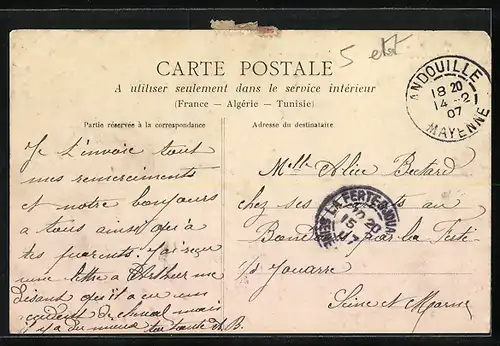 5 ett
CARTE POSTALE
A utiliser seulement dans le service intérieur
(France — Algérie — Tunisie)
Partie réservée à la correspondance
Adresse du destinataire
ANDOUILLE
18 20
14 -2
07
MAYENNE
Je t'envoie tout
mes remerciments
et notre bonjours
a tous ainsi qu'a
tes parents. J'ai reçu
une lettre a me
disant qu'il a eu un
accident de cheval mais
il y a du mieux ta tante A. B.
Melle Alice
chez ses au
par la Ferté
s/s Jouarre
Seine et Marne
LA FERTE-S-JOUARRE
20
15
SEINE